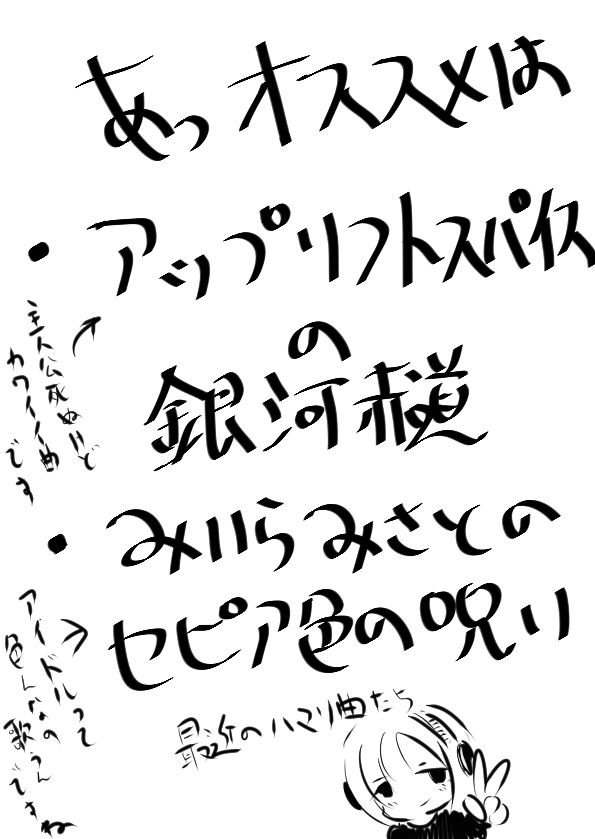 あっ オススメは
・アップリフトスパイス
の
銀河赤道
主人公死ぬけど
カワイイ曲
です
・みいらみさとの
セピア色の呪い
アイドルって
色んなの
歌うん
ですね
最近のハマり曲たち